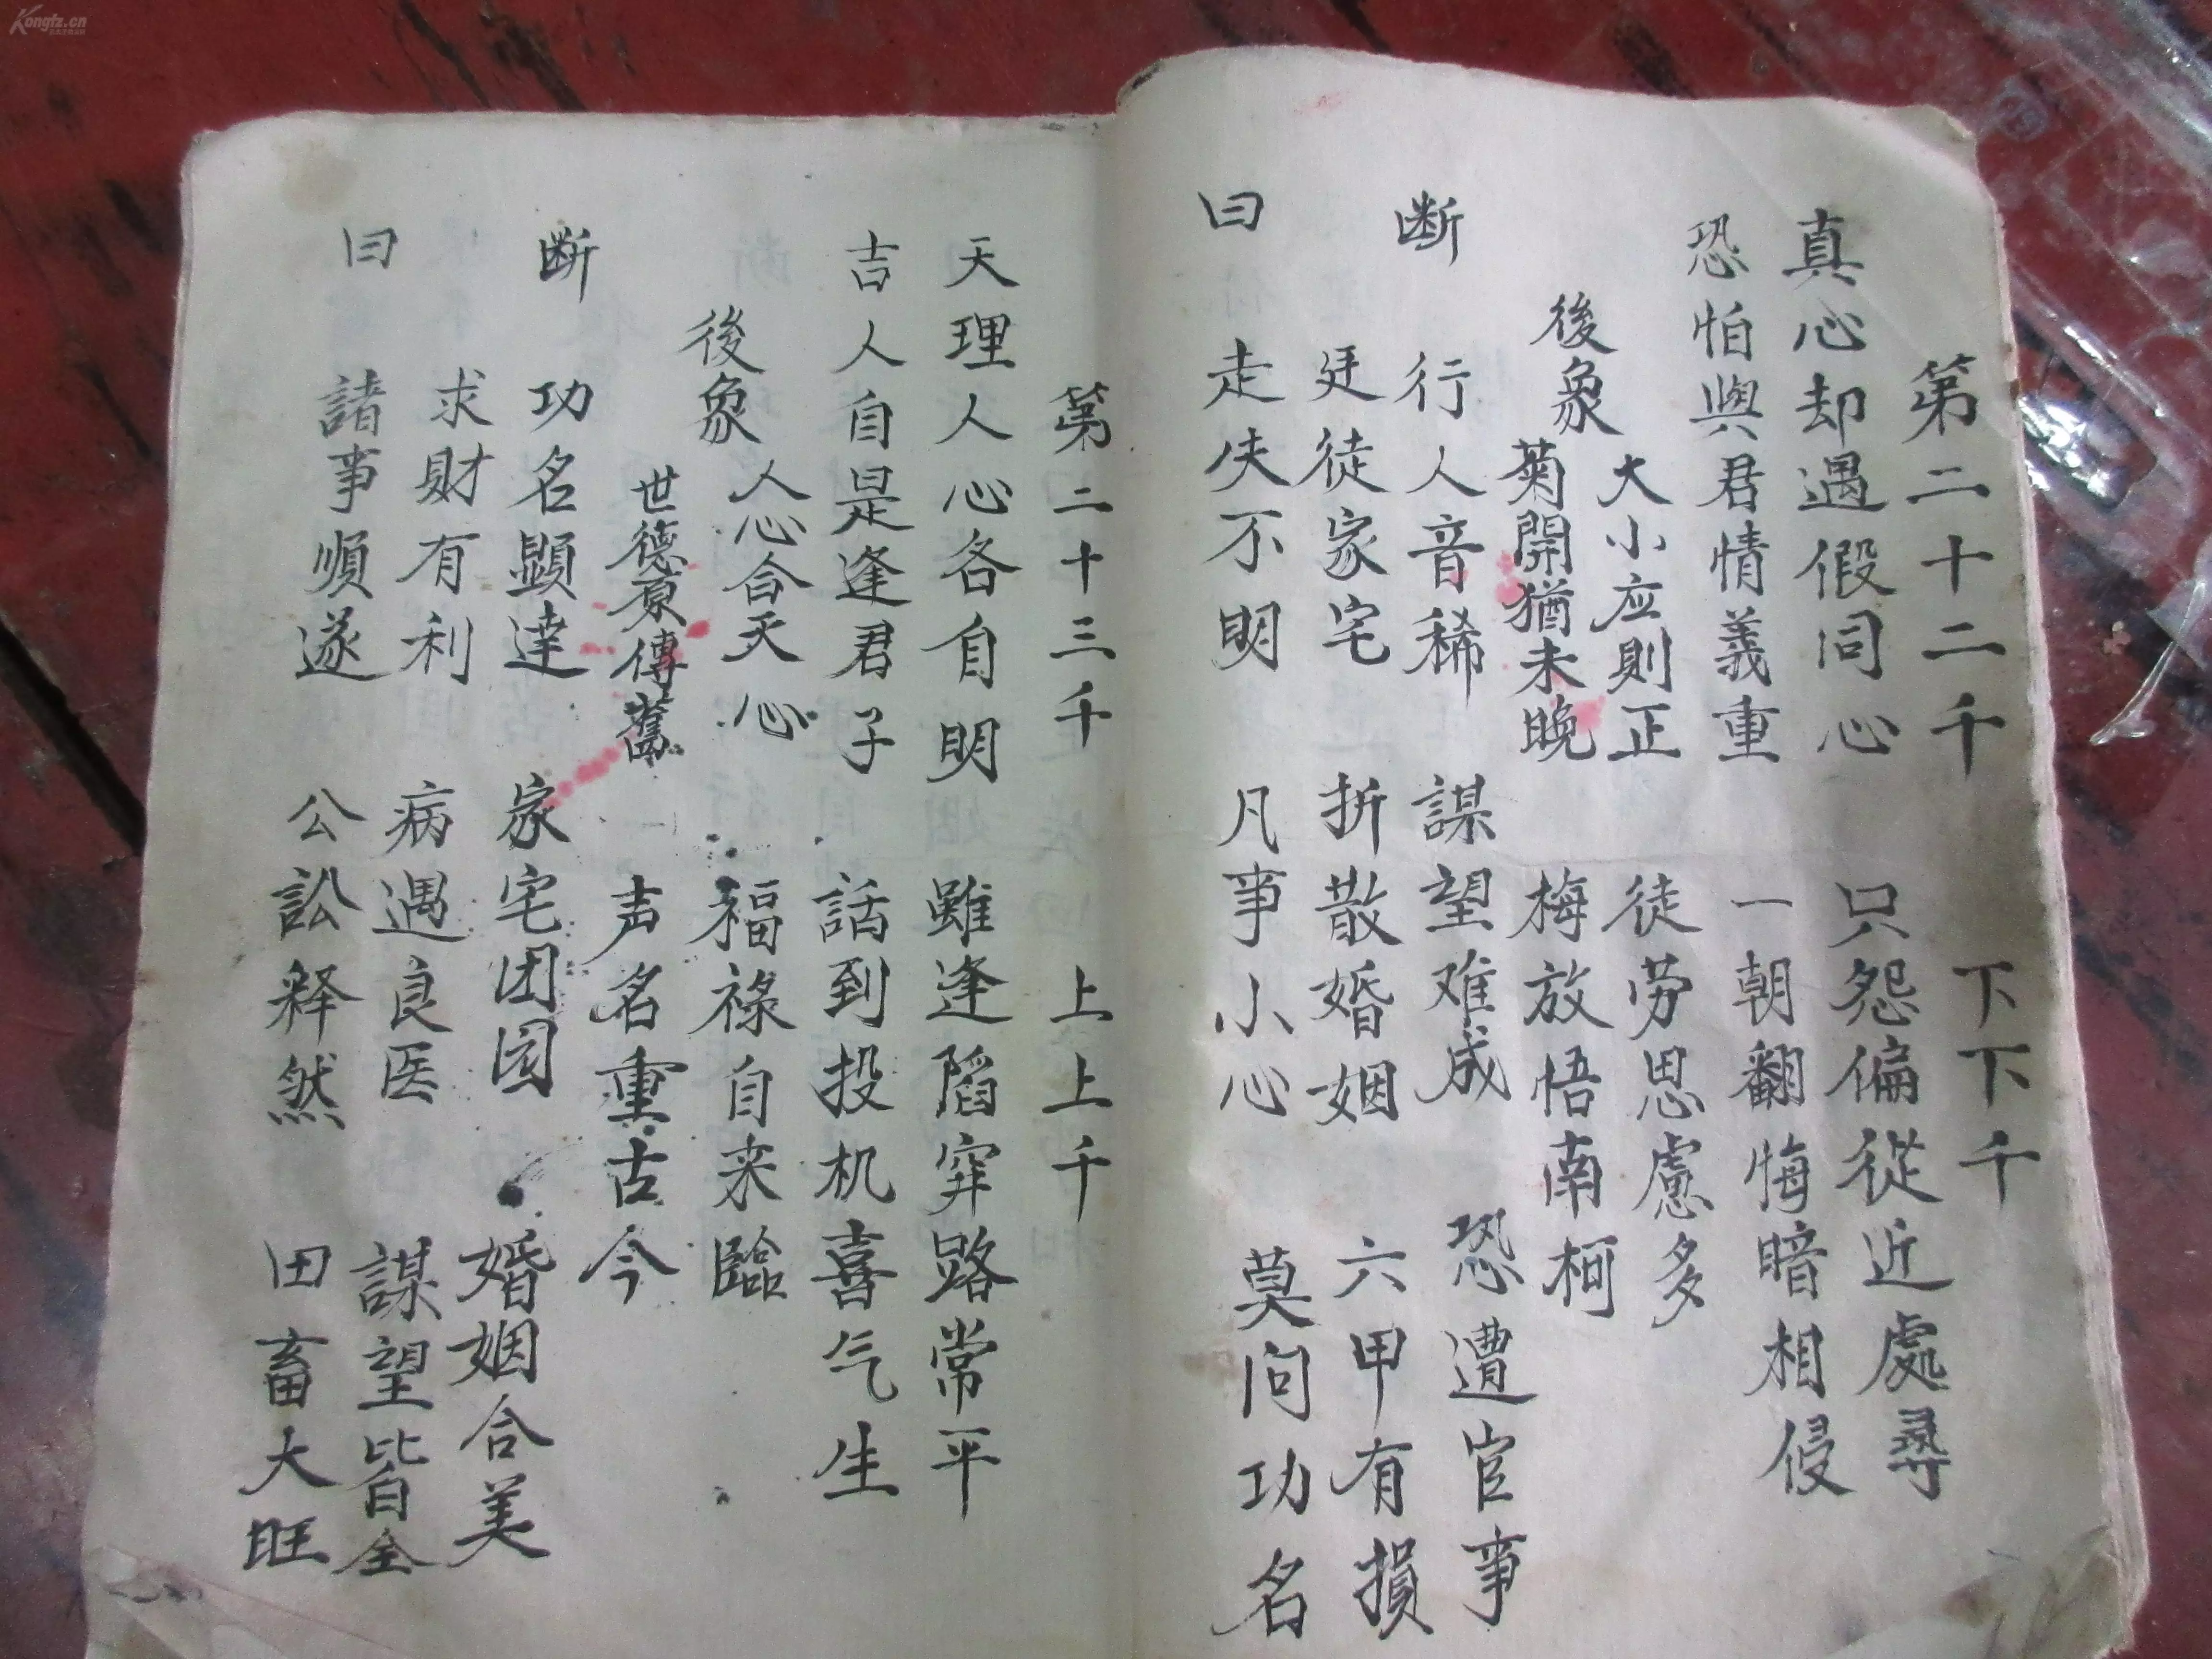 第二十二千　下下千
真心却遇假同心　只怨偏從近處尋
恐怕與君情義重　一朝翻悔暗相侵
後象
大小应則正　徒劳思慮多
菊開猶未晚　梅放悟南柯
断
行人音稀　謀望难成　恐遭官事
廷徒家宅　折散婚姻　六甲有損
曰
走失不明　凡事小心　莫问功名
第二十三千　上上千
天理人心各自明　雖逢陷穽路常平
吉人自是逢君子　話到投机喜气生
後象
人心合天心　福祿自来臨
世德原傳舊　声名重古今
断
功名顕達　家宅团园　婚姻合美
求財有利　病遇良医　謀望皆全
曰
諸事順遂　公訟释然　田畜大旺
Kongfz.cn